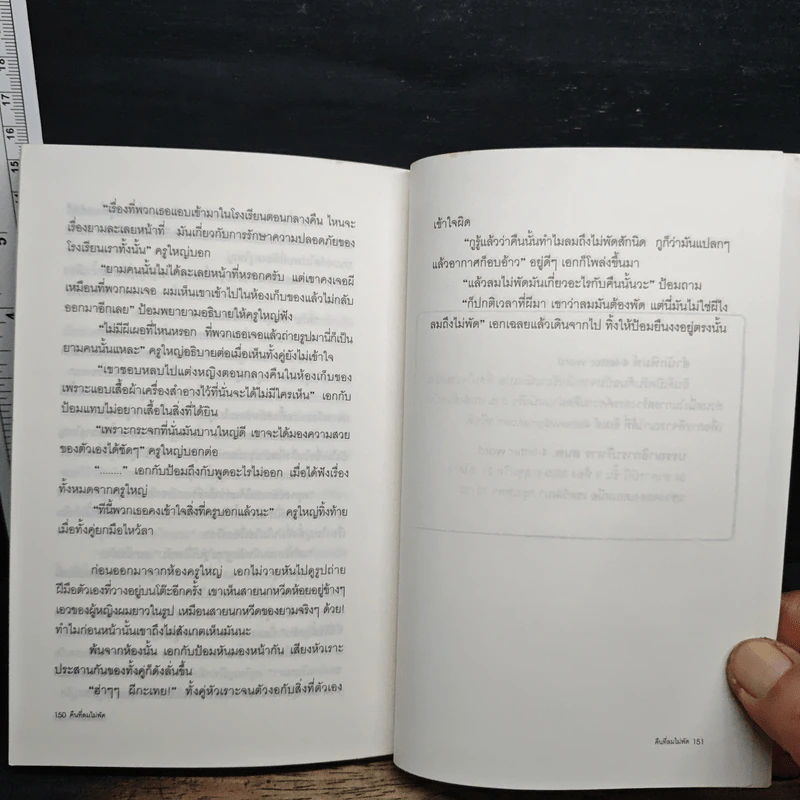 "เรื่องที่พวกเธอแอบเข้ามาในโรงเรียนตอนกลางคืน ไหนจะ
เรื่องยามละเลยหน้าที่ มันเกี่ยวกับการรักษาความปลอดภัยของ
โรงเรียนเราทั้งนั้น" ครูใหญ่บอก
"ยามคนนั้นไม่ได้ละเลยหน้าที่หรอกครับ แต่เขาคงเจอผี
เหมือนที่พวกผมเจอ ผมเห็นเขาเข้าไปในห้องเก็บของแล้วไม่กลับ
ออกมาอีกเลย" ป้อมพยายามอธิบายให้ครูใหญ่ฟัง
"ไม่มีผีเผอที่ไหนหรอก ที่พวกเธอเจอแล้วถ่ายรูปมานี่ก็เป็น
ยามคนนั้นแหละ" ครูใหญ่อธิบายต่อเมื่อเห็นทั้งคู่ยังไม่เข้าใจ
"เขาชอบหลบไปแต่งหญิงตอนกลางคืนในห้องเก็บของ
เพราะแอบเสื้อผ้าเครื่องสำอางไว้ที่นั่นจะได้ไม่มีใครเห็น" เอกกับ
ป้อมแทบไม่อยากเสื้อในสิ่งที่ได้ยิน
"เพราะกระจกที่นั่นมันบานใหญ่ดี เขาจะได้มองความสวย
ของตัวเองได้ชัดๆ" ครูใหญ่บอกต่อ
"........" เอกกับป้อมถึงกับพูดอะไรไม่ออก เมื่อได้ฟังเรื่อง
ทั้งหมดจากครูใหญ่
"ทีนี้พวกเธอคงเข้าใจสิ่งที่ครูบอกแล้วนะ" ครูใหญ่ทิ้งท้าย
เมื่อทั้งคู่ยกมือไหว้ลา
ก่อนออกมาจากห้องครูใหญ่ เอกไม่วายหันไปดูรูปถ่าย
ฝีมือตัวเองที่วางอยู่บนโต๊ะอีกครั้ง เขาเห็นสายนกหวีดห้อยอยู่ข้างๆ
เอวของผู้หญิงผมยาวในรูป เหมือนสายนกหวีดของยามจริงๆ ด้วย!
ทำไมก่อนหน้านั้นเขาถึงไม่สังเกตเห็นมันนะ
พ้นจากห้องนั้น เอกกับป้อมหันมองหน้ากัน เสียงหัวเราะ
ประสานกันของทั้งคู่ก็ดังลั่นขึ้น
"ฮ่าๆๆ ผีกะเทย!" ทั้งคู่หัวเราะจนตัวงอกับสิ่งที่ตัวเอง
150 คืนที่ลมไม่พัด
เข้าใจผิด
"กูรู้แล้วว่าคืนนั้นทำไมลมถึงไม่พัดสักนิด กูก็ว่ามันแปลกๆ
แล้วอากาศก็อบอ้าว" อยู่ดีๆ เอกก็โพล่งขึ้นมา
"แล้วลมไม่พัดมันเกี่ยวอะไรกับคืนนั้นวะ" ป้อมถาม
"ก็ปกติเวลาที่ผีมา เขาว่าลมมันต้องพัด แต่นี่มันไม่ใช่ผีไง
ลมถึงไม่พัด" เอกเฉลยแล้วเดินจากไป ทิ้งให้ป้อมยืนงงอยู่ตรงนั้น
คืนที่ลมไม่พัด 151
18
17
16
15
5